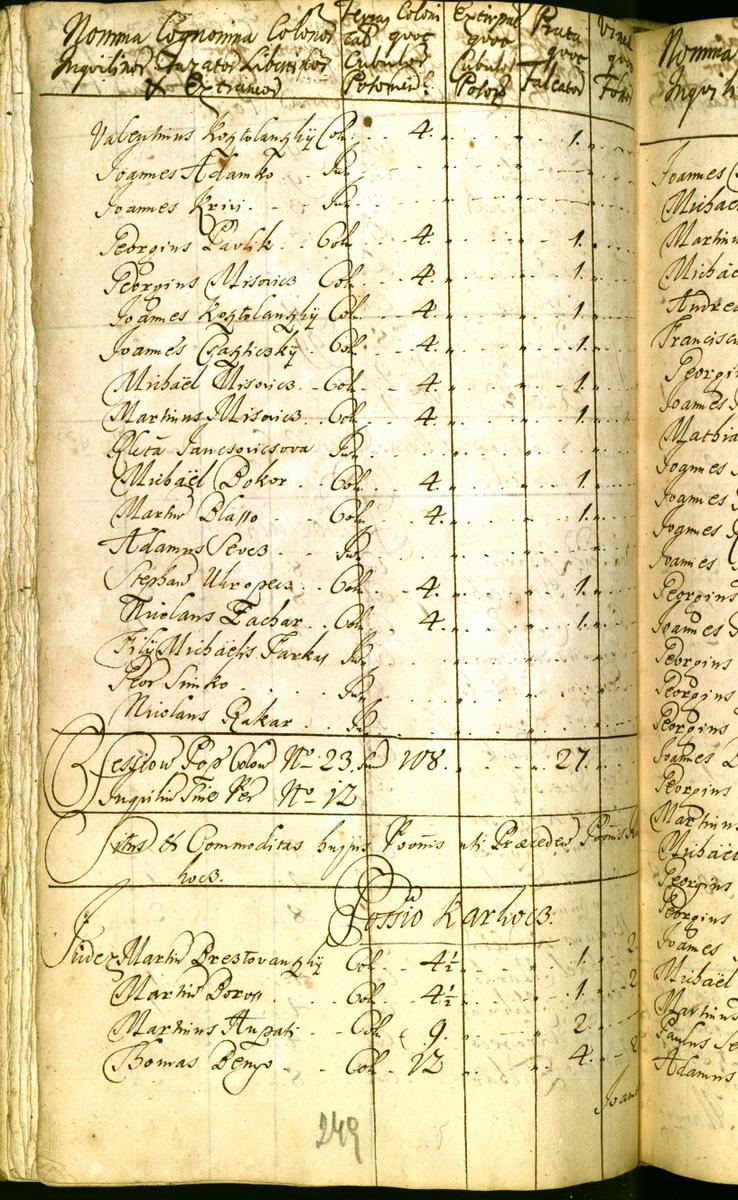 Nomina Cognomina Colonor
Inquilinor Libertinor
& Extraneor
Terrae Coloni
cales quot
Cubulor
Posonien
Extirpat
quot
Cubulor
Poson
Prata
quot
Falcator
Vinea
quot
Fossor
Valentinus Kosztolanszky Col. 4. 1.
Joannes Adamko Inq.
Joannes Krivi Inq.
Georgius Pavlik Col. 4. 1.
Georgius Misovics Col. 4. 1.
Joannes Kosztolanszky Col. 4. 1.
Joannes Col. 4. 1.
Michaël Misovics Col. 4. 1.
Martinus Misovics Col. 4. 1.
Jancsovicsova Inq.
Michaël Bokor Col. 4. 1.
Martin Blasso Col. 4. 1.
Adamus Sevcs Inq.
Stephan Uhropecz Col. 4. 1.
Nicolaus Zachar Col. 4. 1.
Filij Michaëlis Farkas Inq.
Geor Simko Inq.
Nicolaus Rakar Inq.
Colon No 23 108. 27.
No 12
Situs & Commoditas hujus uti Praeceden
hocz.
Possio Karhocz.
Judex Martin Brestovanszky Col. 4½ 1. 2
Martin Boross Col. 4½ 1. 2
Martinus Hupati Col. 9. 2
Thomas Benyo Col. 12 4. 2
Joan
249
Nomina
Inqui
Joannes
Michae
Martinu
Michae
Andrea
Francisc
Georgiu
Joannes
Mathia
Joannes
Joannes
Joannes
Joannes
Georgius
Joannes
Georgius
Georgius
Georgius
Joannes
Georgius
Martinus
Michaë
Georgius
Georgius
Joannes
Michaël
Martinus
Paulus Se
Adamus